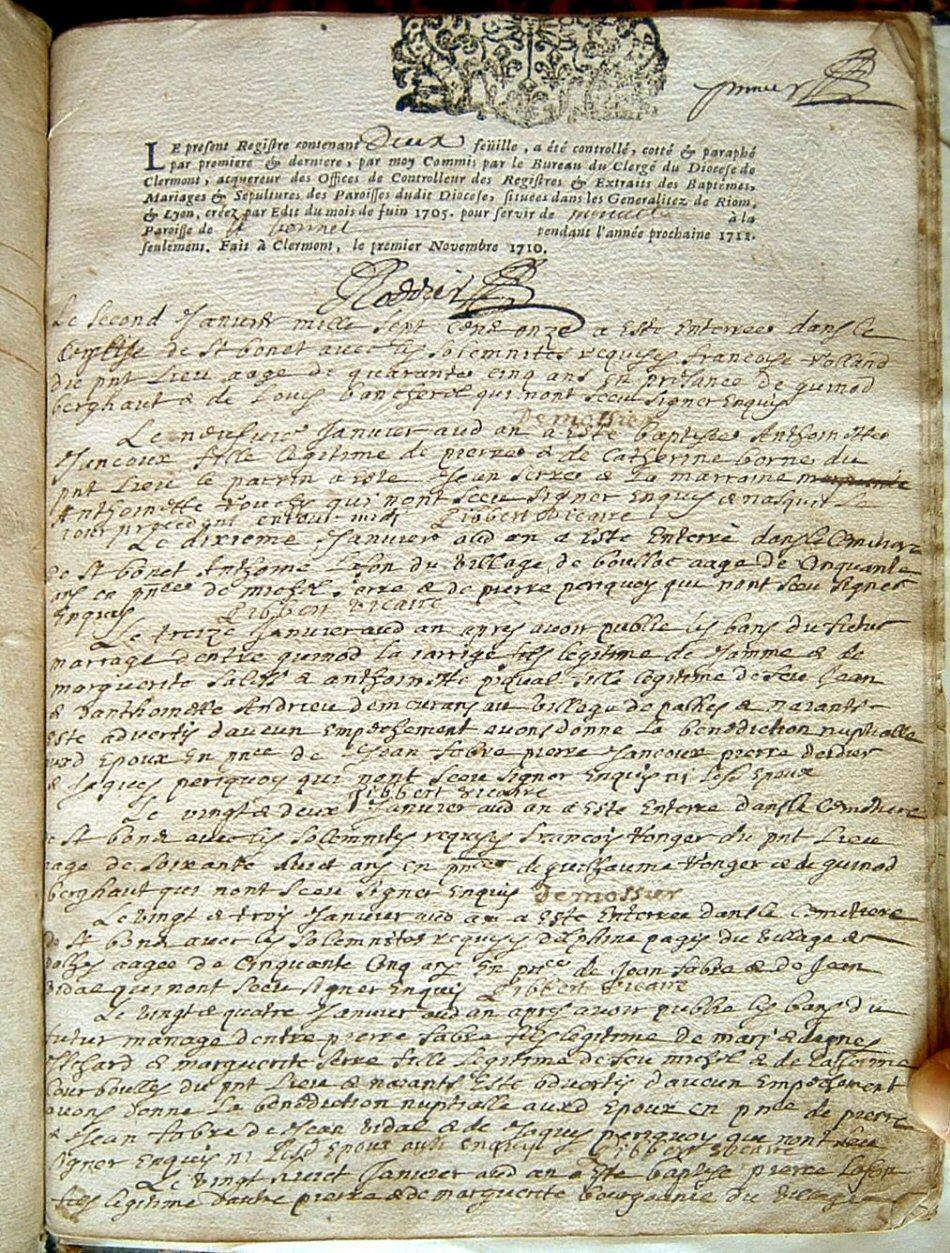 premier
LE present Registre contenant Deux feüille, a été controllé, cotté & paraphé
par premiere & derniere, par moy Commis par le Bureau du Clergé du Diocese de
Clermont, acquereur des Offices de Controlleur des Registres & Extraits des Baptêmes,
Mariages & Sepultures des Paroisses dudit Diocese, situées dans les Generalitez de Riom,
& Lyon, créez par Edit du mois de Juin 1705. pour servir de minutte à la
Paroisse de St bonnet pendant l'année prochaine 1711.
seulement. Fait à Clermont, le premier Novembre 1710.
Le Second Janvier mille Sept Cens onze a Este Enterree dans le
de St bonet avec les solemnites requises francoise volland
du pnt Lieu aage de quarante Cinq ans En presance de guinod
berghaut & de Louis qui nont sceu signer Enquis
Demossier
Le neufvie Janvier aud an a Este baptisee Anthoinette
Juncoux fille legitime de pierre & de Catherine borne du
pnt Lieu le parrin a este Jean serre & La marraine
Anthoinette qui nont sceu signer Enquis & nasquit Le
jour precedant environ midi Ribbert vicaire
Le dixieme Janvier aud an a Este Enterre dans le Cemetiere
de St bonet Anthoine Lafon du village de boulloc aage de Cinquante
ans en pnce de michel serre & de pierre periquoy qui nont sceu signer
Enquis Ribbert vicaire
Le treize Janvier aud an apres avoir publie les bans du futur
marrage dentre guinod la iarrige fils legitime de Jamme & de
marguerite & anthoinette piqual fille legitime de feu Jean
& danthoinette Andrieu demeurans au village de & nayants
Este advertis daucun Empechement avons donne La benediction nuptialle
aux Epoux En pnce de Jean fabre pierre Jancoux pierre
& Jaques periquoy qui nont sceu signer Enquis ni Lesd Epoux
Ribbert vicaire
Le vingt & deux Janvier aud an a Este Enterre dans le Cemetiere
de St bonet avec les solemnites requises francois vonger du pnt Lieu
aage de soixante huict ans en pnce de guillaume vonger & de guinod
berghaut qui nont sceu signer Enquis Demossier
Le vingt & trois Janvier aud an a Este Enterree dans le Cemetiere
de St bonet avec les solemnites requises delphine pagis du village de
aagee de Cinquante Cinq ans En pnce de Jean fabre & de Jean
vidal qui nont sceu signer Enquis Ribbert vicaire
Le vingt & quatre Janvier aud an apres avoir publie les bans du
futur mariage dentre pierre fabre fils legitime de & dagnes
& marguerite serre fille legitime de feu michel & de
Courboulles du pnt Lieu & nayants Este advertis daucun Empechement
avons donne La benediction nuptialle auxd Epoux en pnce de pierre
& Jean fabre de Jean vidal & de Jaques periquoy qui nont sceu
signer Enquis ni Lesd Epoux aussi enquis Ribbert vicaire
Le vingt huict Janvier aud an a Este baptise pierre Lafon
fils legitime dautre pierre & de marguerite du village